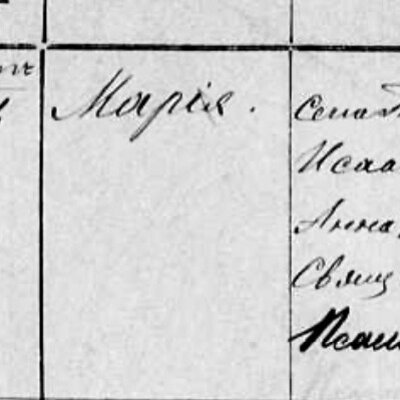 Марія.
Исаа
Анна,
Свящ
Псал